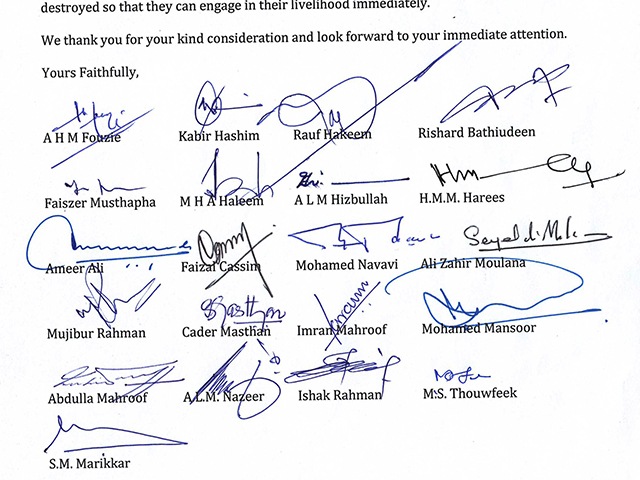 destroyed so that they can engage in their livelihood immediately.
We thank you for your kind consideration and look forward to your immediate attention.
Yours Faithfully,
A H M Fouzie Kabir Hashim Rauf Hakeem Rishard Bathiudeen
Faiszer Musthapha M H A Haleem A L M Hizbullah H.M.M. Harees
Ameer Ali Faizal Cassim Mohamed Navavi Ali Zahir Moulana
Mujibur Rahman Cader Masthan Imran Mahroof Mohamed Mansoor
Abdulla Mahroof A.L.M. Nazeer Ishak Rahman M.S. Thouwfeek
S.M. Marikkar